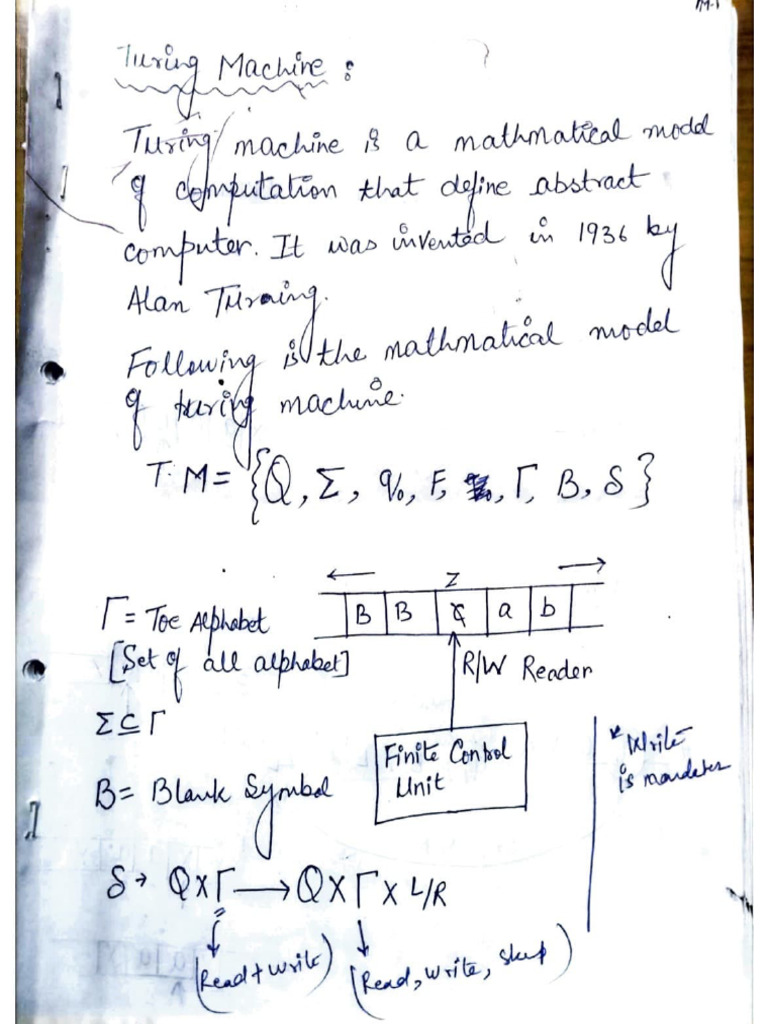 M-1
Turing Machine :
Turing machine is a mathmatical model
of computation that define abstract
computer. It was invented in 1936 by
Alan Turaing.
Following is the mathmatical model
of turing machine.
T.M = {Q, Σ, q₀, F, Γ, B, δ}
Γ = Toe Alphabet
[Set of all alphabet]
Σ ⊆ Γ
B = Blank Symbol
← Z →
B B a b
R/W Reader
Finite Control
Unit
* Write
is
δ → Q X Γ → Q X Γ X L/R
(Read + Write) (Read, Write, )